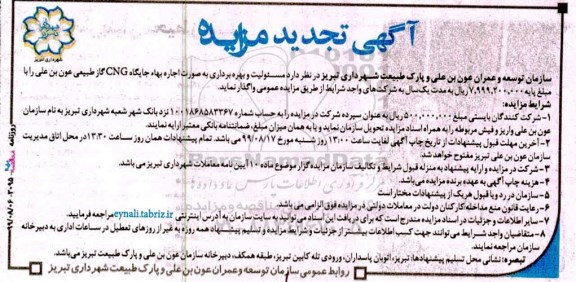 آگهی تجدید مزایده
شهرداری تبریز
سازمان توسعه و عمران عون بن علی و پارک طبیعت شهرداری تبریز در نظر دارد مسئولیت و بهره برداری به صورت اجاره بهاء جایگاه CNG گاز طبیعی عون بن علی را با
مبلغ پایه 7,999,200,000 ریال به مدت یکسال به شرکت‌های واجد شرایط از طریق مزایده عمومی واگذار نماید.
شرایط مزایده:
۱- شرکت کنندگان بایستی مبلغ ۵۰۰,۰۰۰,۰۰۰ ریال به عنوان سپرده شرکت در مزایده را به حساب شماره ۱۰۰۱۸۶۸۵۸۳۳۶۷ نزد بانک شهر شعبه شهرداری تبریز به نام سازمان
عون بن علی واریز و فیش مربوطه را به همراه اسناد مزایده تحویل سازمان نماید و یا به همان میزان مبلغ، ضمانتنامه بانکی معتبر ارایه نمایند.
۲- آخرین مهلت قبول پیشنهادات از تاریخ چاپ آگهی لغایت ساعت ۱۳:۰۰ روز شنبه مورخ ۹۹/۰۸/۱۷ می باشد. تمام پیشنهادات همان روز ساعت ۱۳:۳۰ در محل اتاق مدیریت
سازمان عون بن علی تبریز مفتوح خواهد شد.
۳- شرکت در مزایده و ارایه پیشنهاد به منزله قبول شرایط و تکالیف سازمان مزایده گزار موضوع ماده ۱۰ آیین نامه معاملات شهرداری تبریز می باشد.
۴- هزینه چاپ آگهی به عهده برنده مزایده می‌باشد.
۵- سازمان در رد و یا قبول هر یک از پیشنهادات مختار است
۶- رعایت قانون منع مداخله کارکنان دولت در معاملات دولتی در مزایده فوق الزامی می باشد.
۷- سایر اطلاعات و جزئیات در اسناد مزایده مندرج است که برای دریافت این اسناد می توانید به سایت سازمان به آدرس اینترنتی eynali.tabriz.ir مراجعه فرمایید.
۸- متقاضیان واجد شرایط می توانند جهت کسب اطلاعات بیشتر از جزئیات و شرایط مزایده و تسلیم پیشنهاد همه روزه به غیر از روزهای تعطیل در ساعات اداری به دبیرخانه
سازمان مراجعه نمایند.
تبصره: نشانی محل تسلیم پیشنهادها: تبریز، اتوبان پاسداران، ورودی تله کابین تبریز، طبقه همکف، دبیرخانه سازمان عون بن علی و پارک طبیعت تبریز می‌باشد.
روابط عمومی سازمان توسعه و عمران عون بن علی و پارک طبیعت شهرداری تبریز